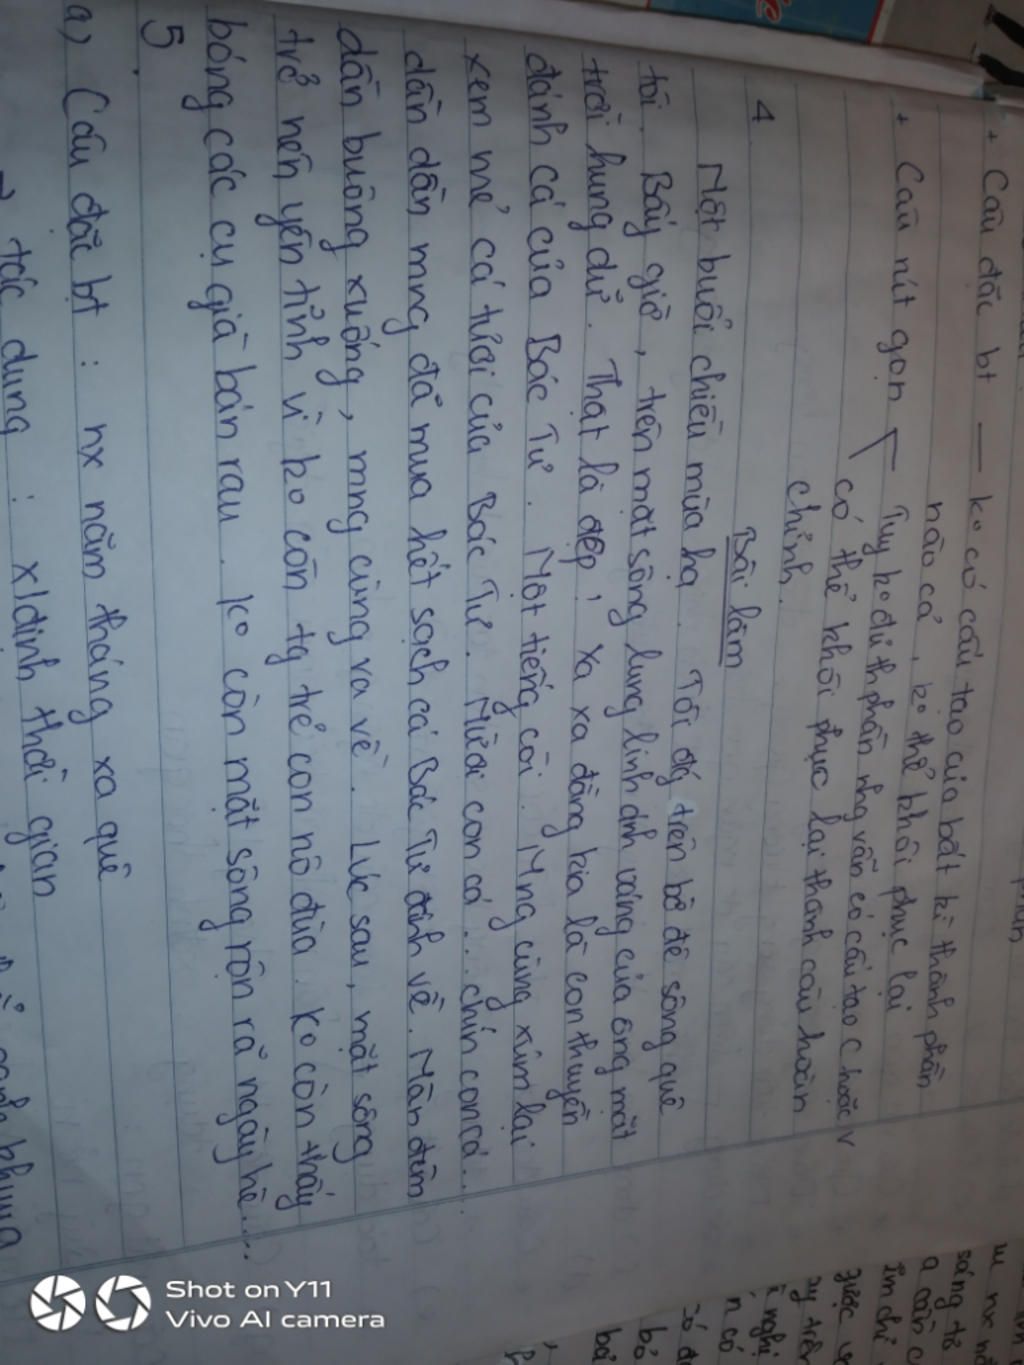 + Câu đặc bt — ko có cấu tạo của bất kì thành phần
nào cả, ko thể khôi phục lại
+ Câu rút gọn Tuy ko đủ th phần nhg vẫn có cấu tạo C hoặc V
có thể khôi phục lại thành câu hoàn
chỉnh.
4
Bài làm
Một buổi chiều mùa hạ. Tôi đg trên bờ đê sông quê
tôi. Bấy giờ, trên mặt sông lung linh ánh vàng của ông mặt
trời hung dữ. Thật là đẹp, xa xa đằng kia là con thuyền
đánh cá của Bác Tư. Một tiếng còi. Mng cùng xúm lại
xem mẻ cá tươi của Bác Tư. Mười con cá... chín con cá...
dần dần mng đã mua hết sạch cá Bác Tư đánh về. Màn đêm
dần buông xuống, mng cùng ra về. Lúc sau, mặt sông
trở nên yên tĩnh vì ko còn tg trẻ con nô đùa. Ko còn thấy
bóng các cụ già bán rau. Ko còn mặt sông rộn rã ngày hè....
5
a) Câu đặc bt : nx năm tháng xa quê
tác dụng : x/định thời gian
Shot on Y11
Vivo AI camera